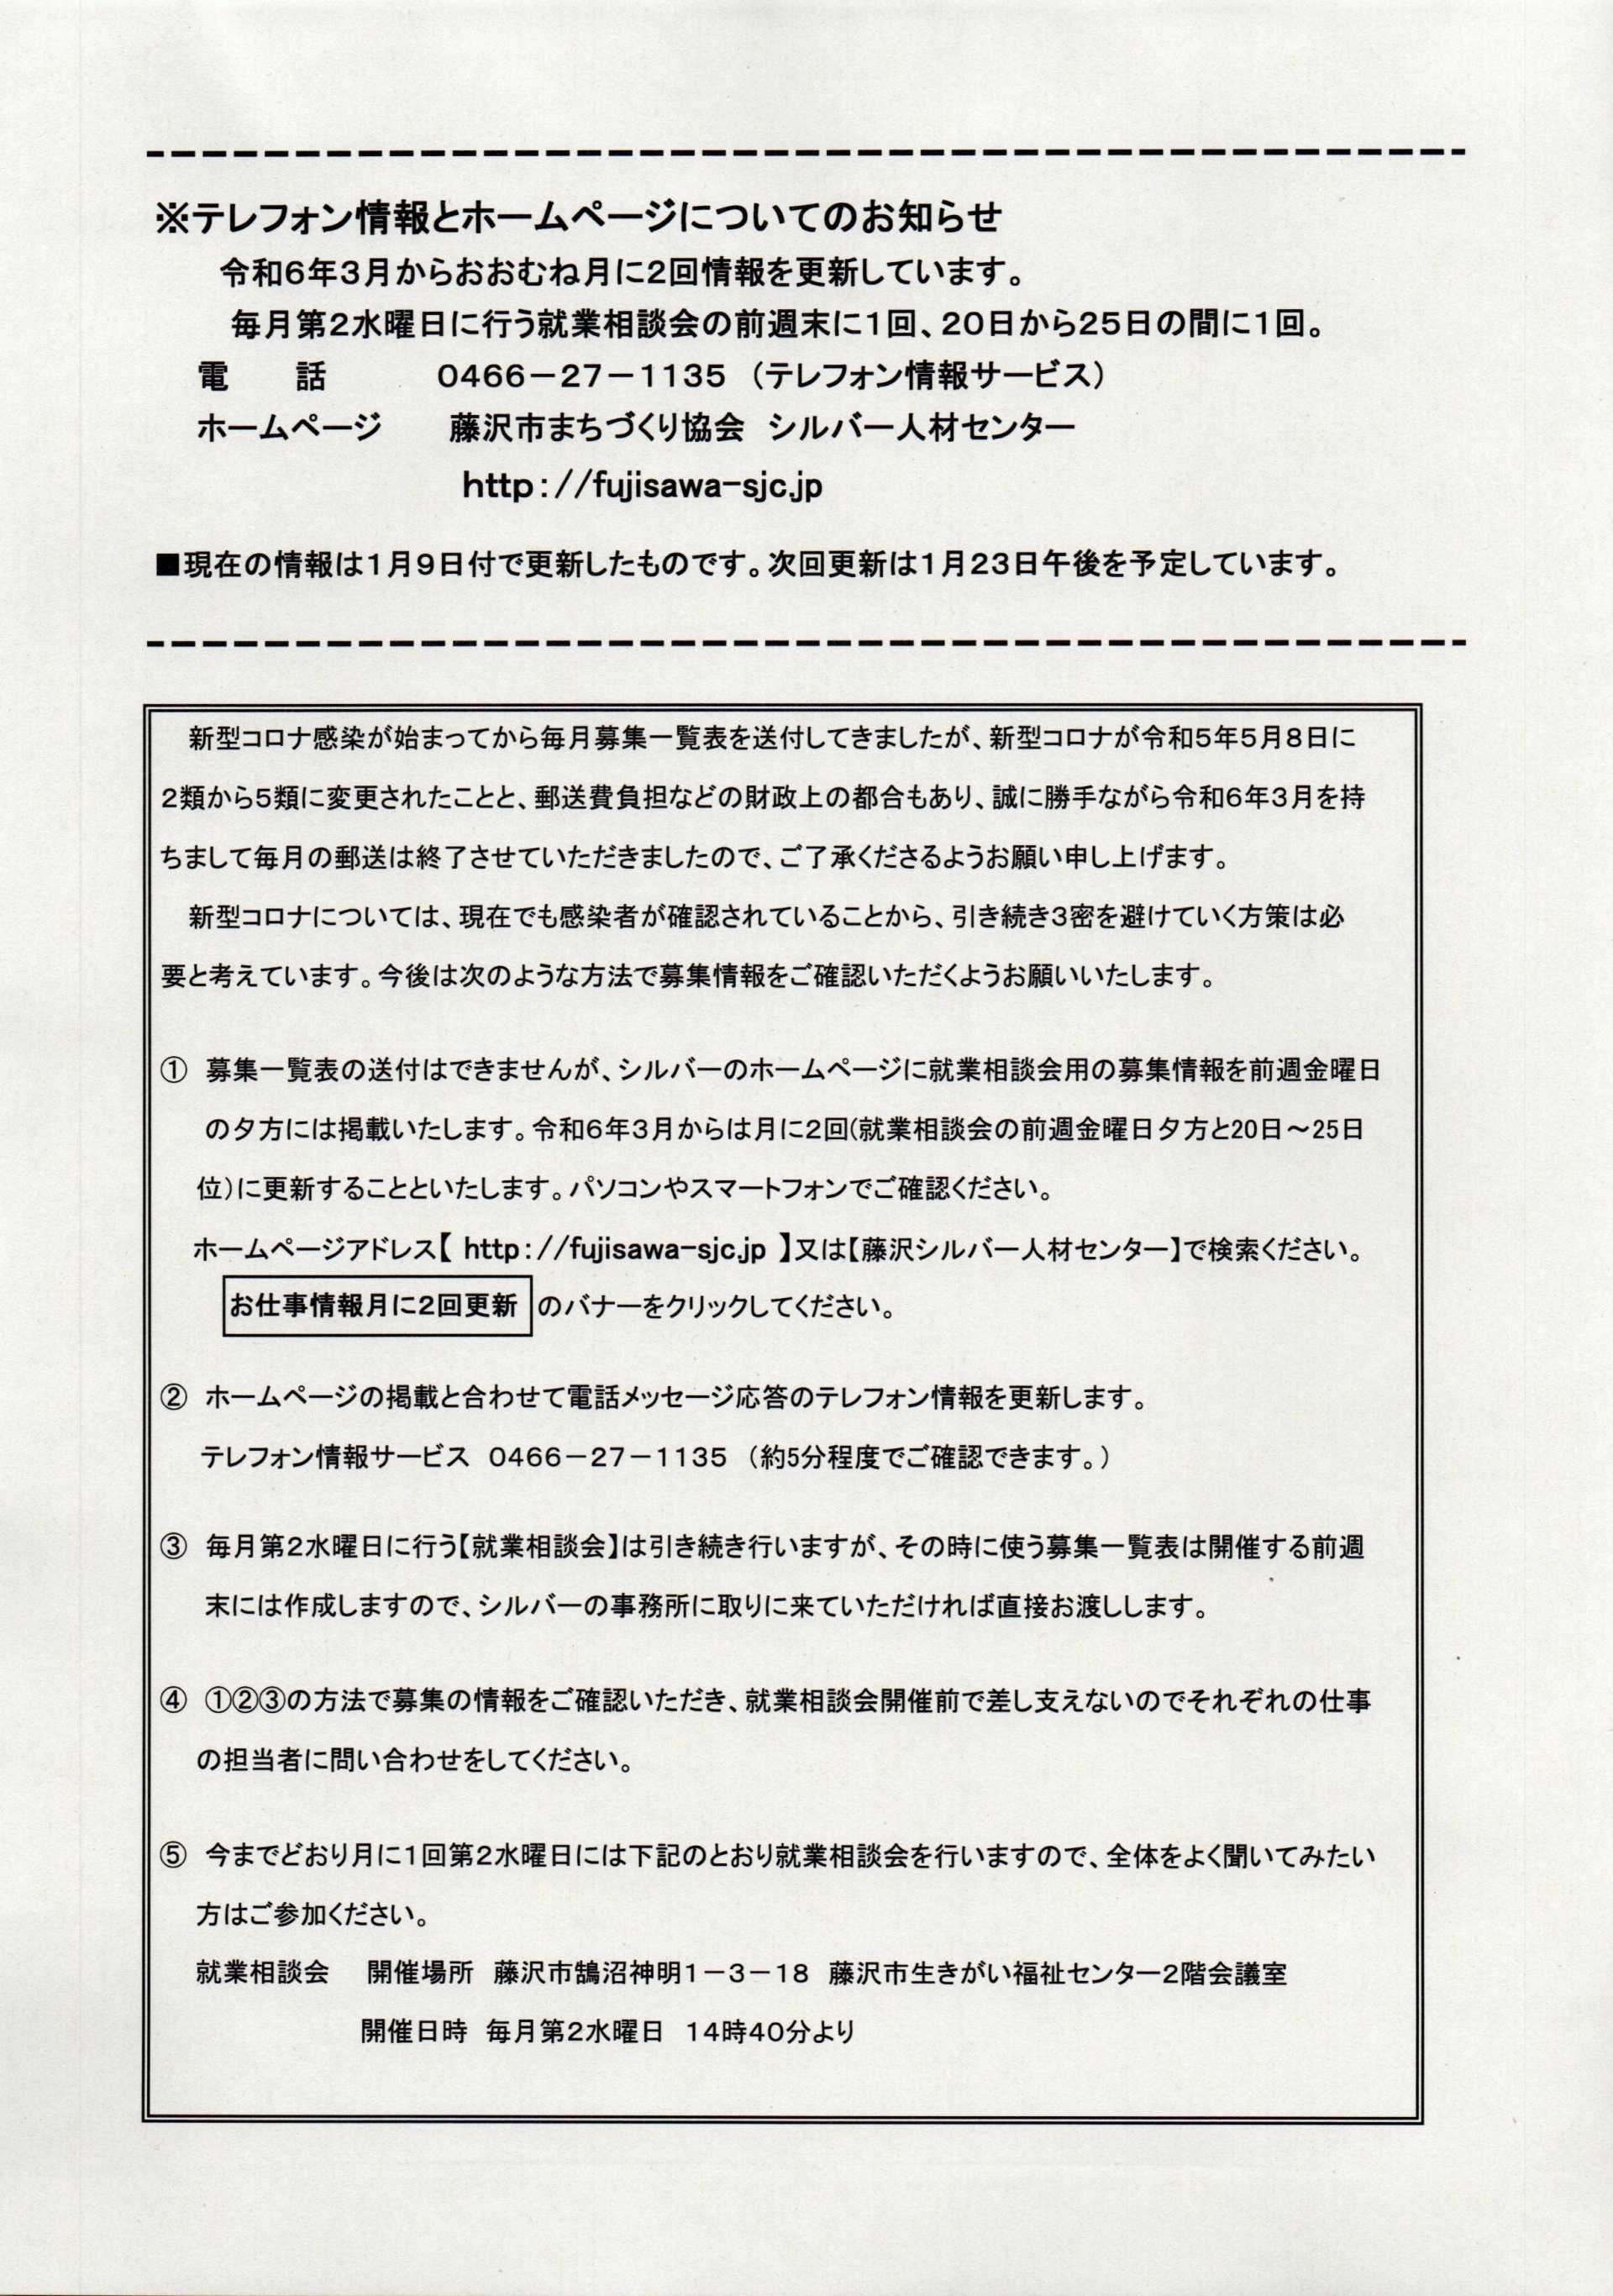 ※テレフォン情報とホームページについてのお知らせ
令和６年３月からおおむね月に２回情報を更新しています。
毎月第２水曜日に行う就業相談会の前週末に１回、２０日から２５日の間に１回。
電　　話　　　０４６６－２７－１１３５　（テレフォン情報サービス）
ホームページ　　藤沢市まちづくり協会　シルバー人材センター
http：//fujisawa-sjc.jp
■現在の情報は１月９日付で更新したものです。次回更新は１月２３日午後を予定しています。
新型コロナ感染が始まってから毎月募集一覧表を送付してきましたが、新型コロナが令和５年５月８日に
２類から５類に変更されたことと、郵送費負担などの財政上の都合もあり、誠に勝手ながら令和６年３月を持
ちまして毎月の郵送は終了させていただきましたので、ご了承くださるようお願い申し上げます。
新型コロナについては、現在でも感染者が確認されていることから、引き続き３密を避けていく方策は必
要と考えています。今後は次のような方法で募集情報をご確認いただくようお願いいたします。
①　募集一覧表の送付はできませんが、シルバーのホームページに就業相談会用の募集情報を前週金曜日
の夕方には掲載いたします。令和６年３月からは月に２回(就業相談会の前週金曜日夕方と20日～25日
位)に更新することといたします。パソコンやスマートフォンでご確認ください。
ホームページアドレス【 http：//fujisawa-sjc.jp 】又は【藤沢シルバー人材センター】で検索ください。
お仕事情報月に２回更新 のバナーをクリックしてください。
②　ホームページの掲載と合わせて電話メッセージ応答のテレフォン情報を更新します。
テレフォン情報サービス　０４６６－２７－１１３５　（約5分程度でご確認できます。）
③　毎月第２水曜日に行う【就業相談会】は引き続き行いますが、その時に使う募集一覧表は開催する前週
末には作成しますので、シルバーの事務所に取りに来ていただければ直接お渡しします。
④　①②③の方法で募集の情報をご確認いただき、就業相談会開催前で差し支えないのでそれぞれの仕事
の担当者に問い合わせをしてください。
⑤　今までどおり月に１回第２水曜日には下記のとおり就業相談会を行いますので、全体をよく聞いてみたい
方はご参加ください。
就業相談会　開催場所　藤沢市鵠沼神明１－３－１８　藤沢市生きがい福祉センター２階会議室
開催日時　毎月第２水曜日　１４時４０分より